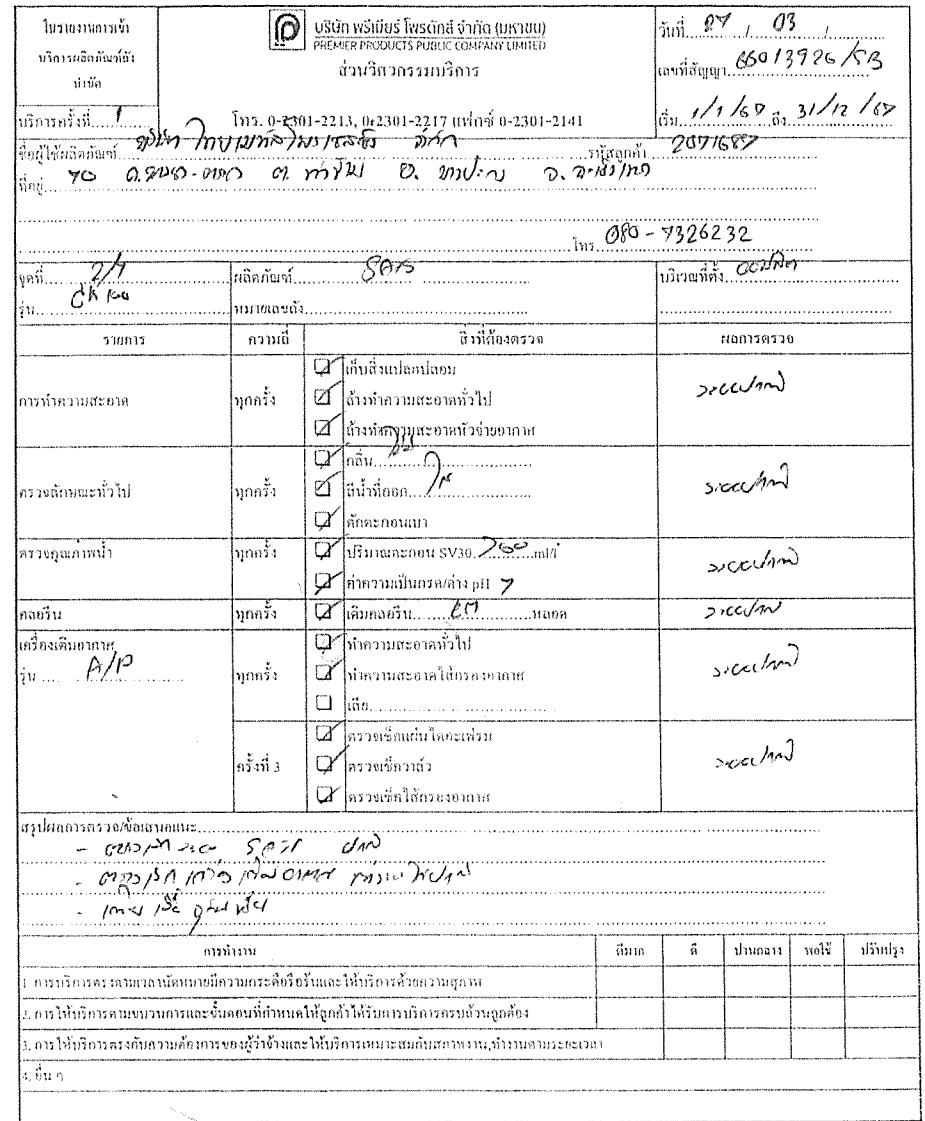 ใบรายงานการเข้า
บริการผลิตภัณฑ์ถัง
บำบัด
บริการครั้งที่ 1
บริษัท พรีเมียร์ โพรดักส์ จำกัด (มหาชน)
PREMIER PRODUCTS PUBLIC COMPANY LIMITED
ส่วนวิศวกรรมบริการ
โทร. 0-2301-2213, 0-2301-2217 แฟกซ์ 0-2301-2141
วันที่ 27 / 03 /
เลขที่สัญญา 66013926/SB
เริ่ม 1/1/67 ถึง 31/12/67
ชื่อผู้ใช้ผลิตภัณฑ์ บริษัท ไทย จำกัด รหัสลูกค้า 2071687
ที่อยู่ 70 ต. ท่าข้าม อ. บางปะกง จ. ฉะเชิงเทรา
โทร. 080-7326232
จุดที่ 2/4 ผลิตภัณฑ์ SATS บริเวณที่ตั้ง
รุ่น หมายเลขถัง
รายการ ความถี่ สิ่งที่ต้องตรวจ ผลการตรวจ
การทำความสะอาด ทุกครั้ง เก็บสิ่งแปลกปลอม
ล้างทำความสะอาดทั่วไป ระบบปกติ
ล้างทำความสะอาดหัวจ่ายอากาศ
ตรวจลักษณะทั่วไป ทุกครั้ง กลิ่น ไม่มี
สีน้ำที่ออก ใส ระบบปกติ
ตักตะกอนเบา
ตรวจคุณภาพน้ำ ทุกครั้ง ปริมาณตะกอน SV30 760 ml/l
ค่าความเป็นกรด/ด่าง pH 7 ระบบปกติ
คลอรีน ทุกครั้ง เติมคลอรีน หลอด ระบบปกติ
เครื่องเติมอากาศ ทำความสะอาดทั่วไป
รุ่น A/P ทุกครั้ง ทำความสะอาดไส้กรองอากาศ ระบบปกติ
เสีย
ตรวจเช็คแผ่นไดอะเฟรม
ครั้งที่ 3 ตรวจเช็ควาล์ว ระบบปกติ
ตรวจเช็คไส้กรองอากาศ
สรุปผลการตรวจ/ข้อเสนอแนะ
- ปกติ
- ตรวจเช็ค เครื่องเติมอากาศ ทำงานปกติ
- เติมเชื้อจุลินทรีย์
การทำงาน ดีมาก ดี ปานกลาง พอใช้ ปรับปรุง
1. การบริการตรงตามเวลานัดหมายมีความกระตือรือร้นและให้บริการด้วยความสุภาพ
2. การให้บริการตามขบวนการและขั้นตอนที่กำหนดให้ลูกค้าได้รับการบริการครบถ้วนถูกต้อง
3. การให้บริการตรงกับความต้องการของผู้ว่าจ้างและให้บริการเหมาะสมกับสภาพงาน,ทำงานตามระยะเวลา
4. อื่น ๆ